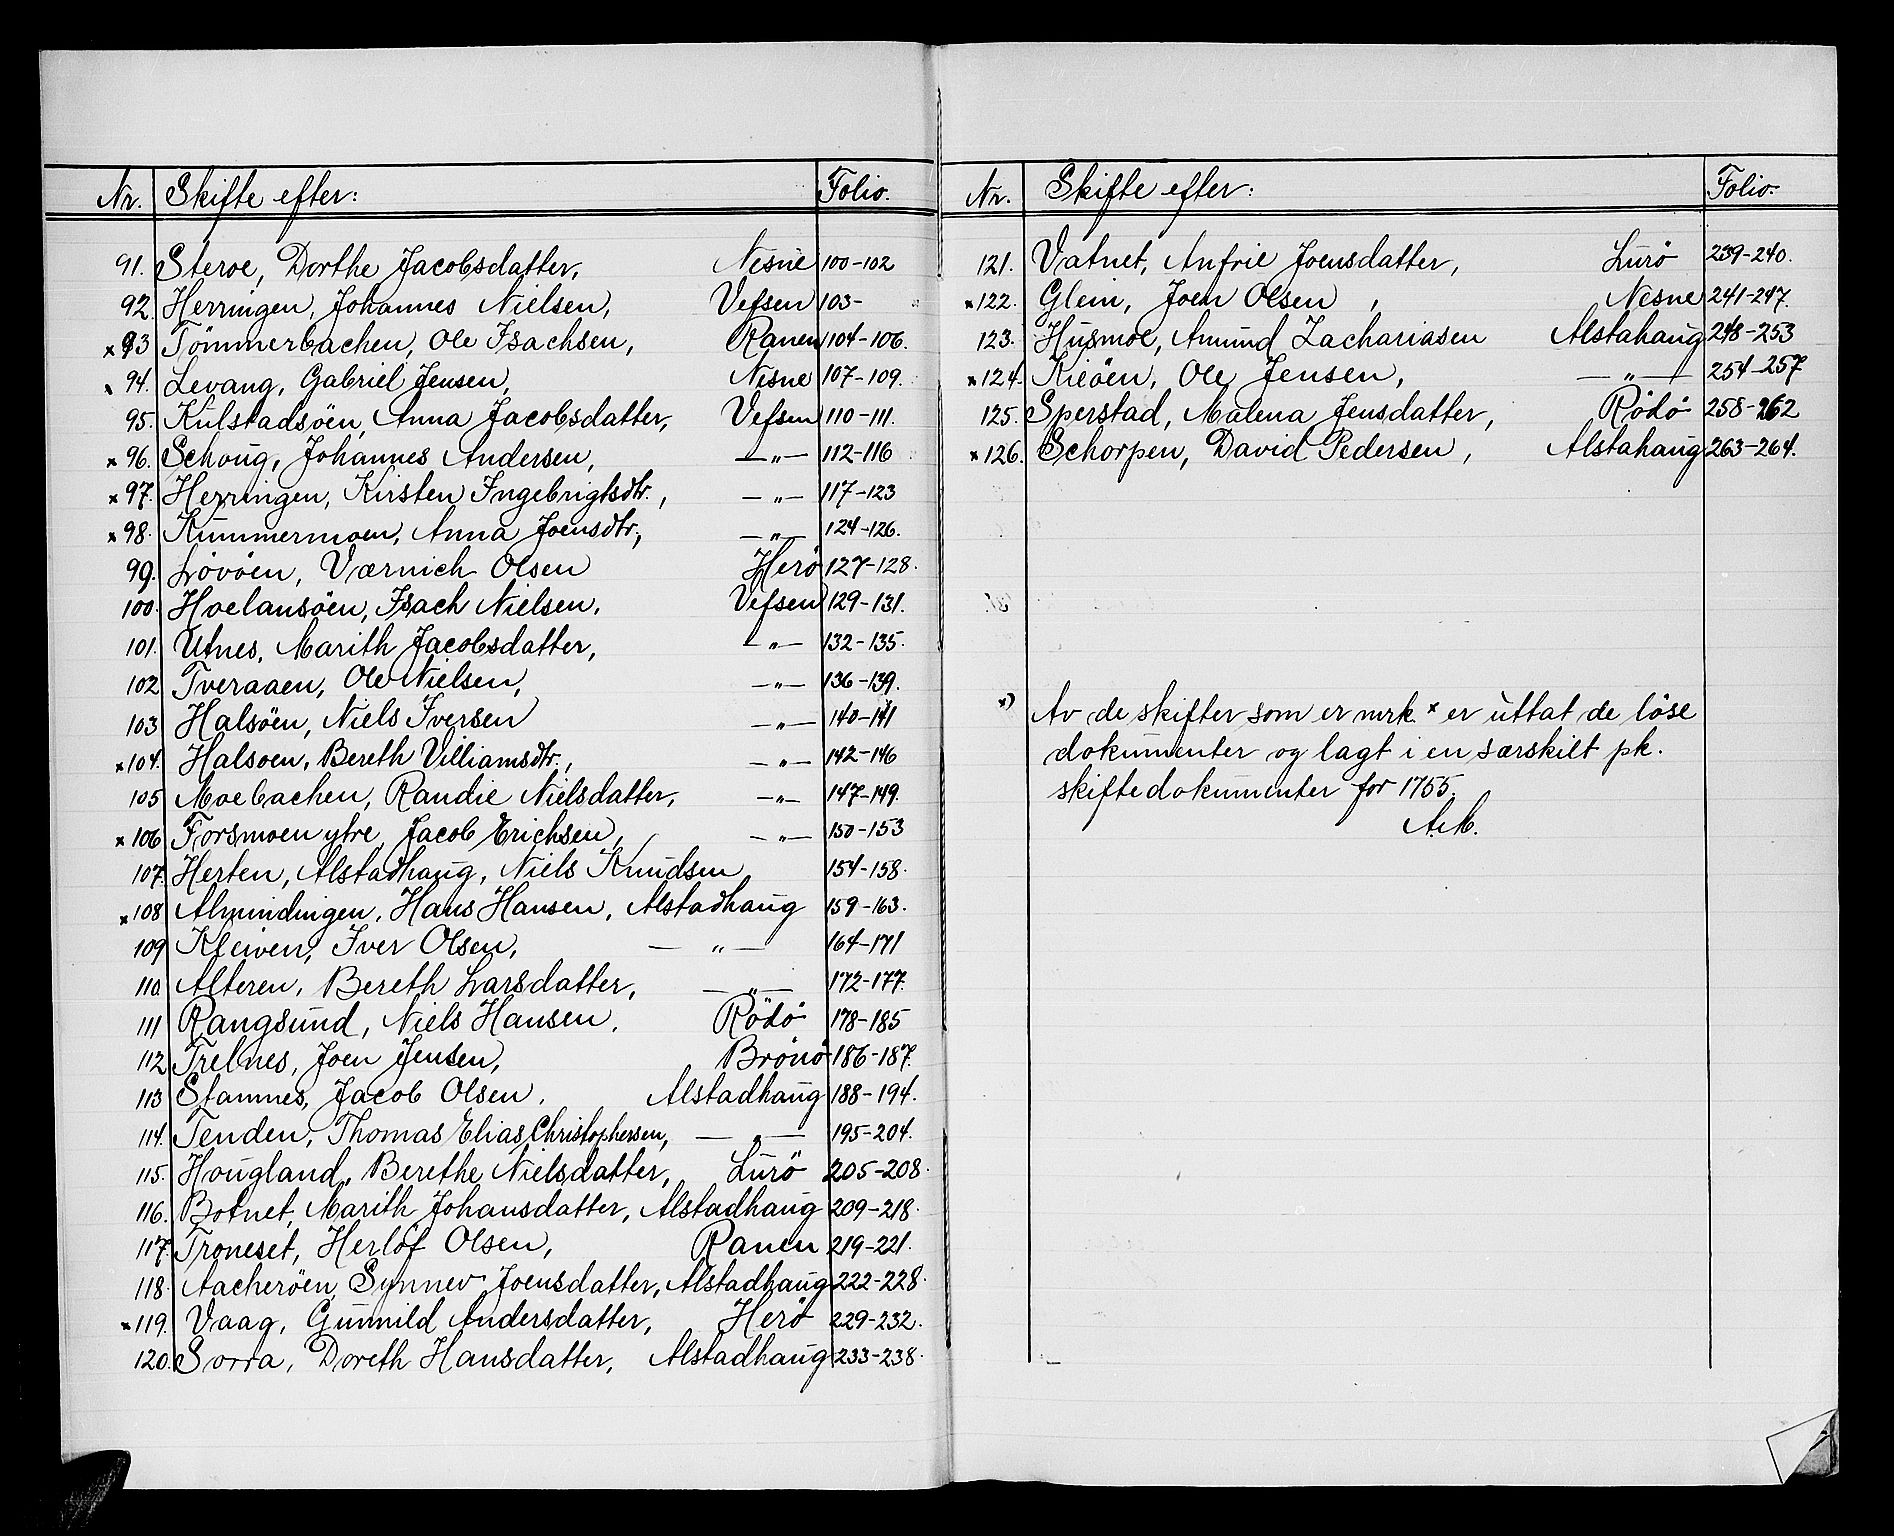 Nr. Skifte efter: Folio.
91. Steroe, Dorthe Jacobsdatter, Nesne 100-102
92. Herringen, Johannes Nielsen, Vefsen 103-
x 93 Tömmerbachen, Ole Isachsen, Ranen 104-106.
x 94. Levang, Gabriel Jensen, Nesne 107-109.
95. Kulstadsöen, Anna Jacobsdatter, Vefsen 110-111.
x 96. Schoug, Johannes Andersen, —„— 112-116
x 97. Herringen, Kirsten Ingebrigtsdtr., —„— 117-123
x 98. Kummermoen, Anna Joensdtr., —„— 124-126.
99. Lövöen, Værnich Olsen Herö 127-128.
100. Hoelansöen, Isach Nielsen, Vefsen 129-131.
101. Utnes, Marith Jacobsdatter, —„— 132-135.
102 Tveraaen, Ole Nielsen, —„— 136-139.
103 Halsöen, Niels Iversen —„— 140-141
x 104. Halsoen, Bereth Villiamsdtr., —„— 142-146
105 Moebachen, Randie Nielsdatter, —„— 147-149.
x 106 Forsmoen ytre, Jacob Erichsen, —„— 150-153
107. Herten, Alstadhaug, Niels Knudsen 154-158.
x 108 Almindingen, Hans Hansen, Alstadhaug 159-163.
109 Kleiven, Iver Olsen, —„— 164-171
110. Alteren, Bereth Larsdatter, —„— 172-177.
111 Rangsund, Niels Hansen, Rödö 178-185
112 Trelnes, Joen Jensen, Brönö 186-187.
113 Stamnes, Jacob Olsen, Alstadhaug 188-194.
114. Tenden, Thomas Elias Christophersen, —„— 195-204.
115. Hougland, Berethe Nielsdatter, Lurö 205-208.
116. Botnet, Marith Johansdatter, Alstadhaug 209-218.
117. Troneset, Herlöf Olsen, Ranen 219-221.
118. Aacheröen, Synnev Joensdatter, Alstadhaug 222-228.
x 119. Vaag, Gunnild Andersdatter, Herö 229-232.
120. Sorra, Doreth Hansdatter, Alstadhaug 233-238.
Nr. Skifte efter: Folio.
121. Vatnet, Anfrie Joensdatter, Lurö 239-240.
x 122. Glein, Joen Olsen, Nesne 241-247.
123. Husmoe, Amund Zachariasen Alstahaug 248-253
x 124. Kieöen, Ole Jensen, —„— 254-257
125. Sperstad, Malena Jensdatter, Rödö 258-262
x 126. Schorpen, David Pedersen, Alstahaug 263-264.
x) Av de skifter som er mrk. x er uttat de löse
dokumenter og lagt i en særskilt pk.
skiftedokumenter for 1755.
A.M.